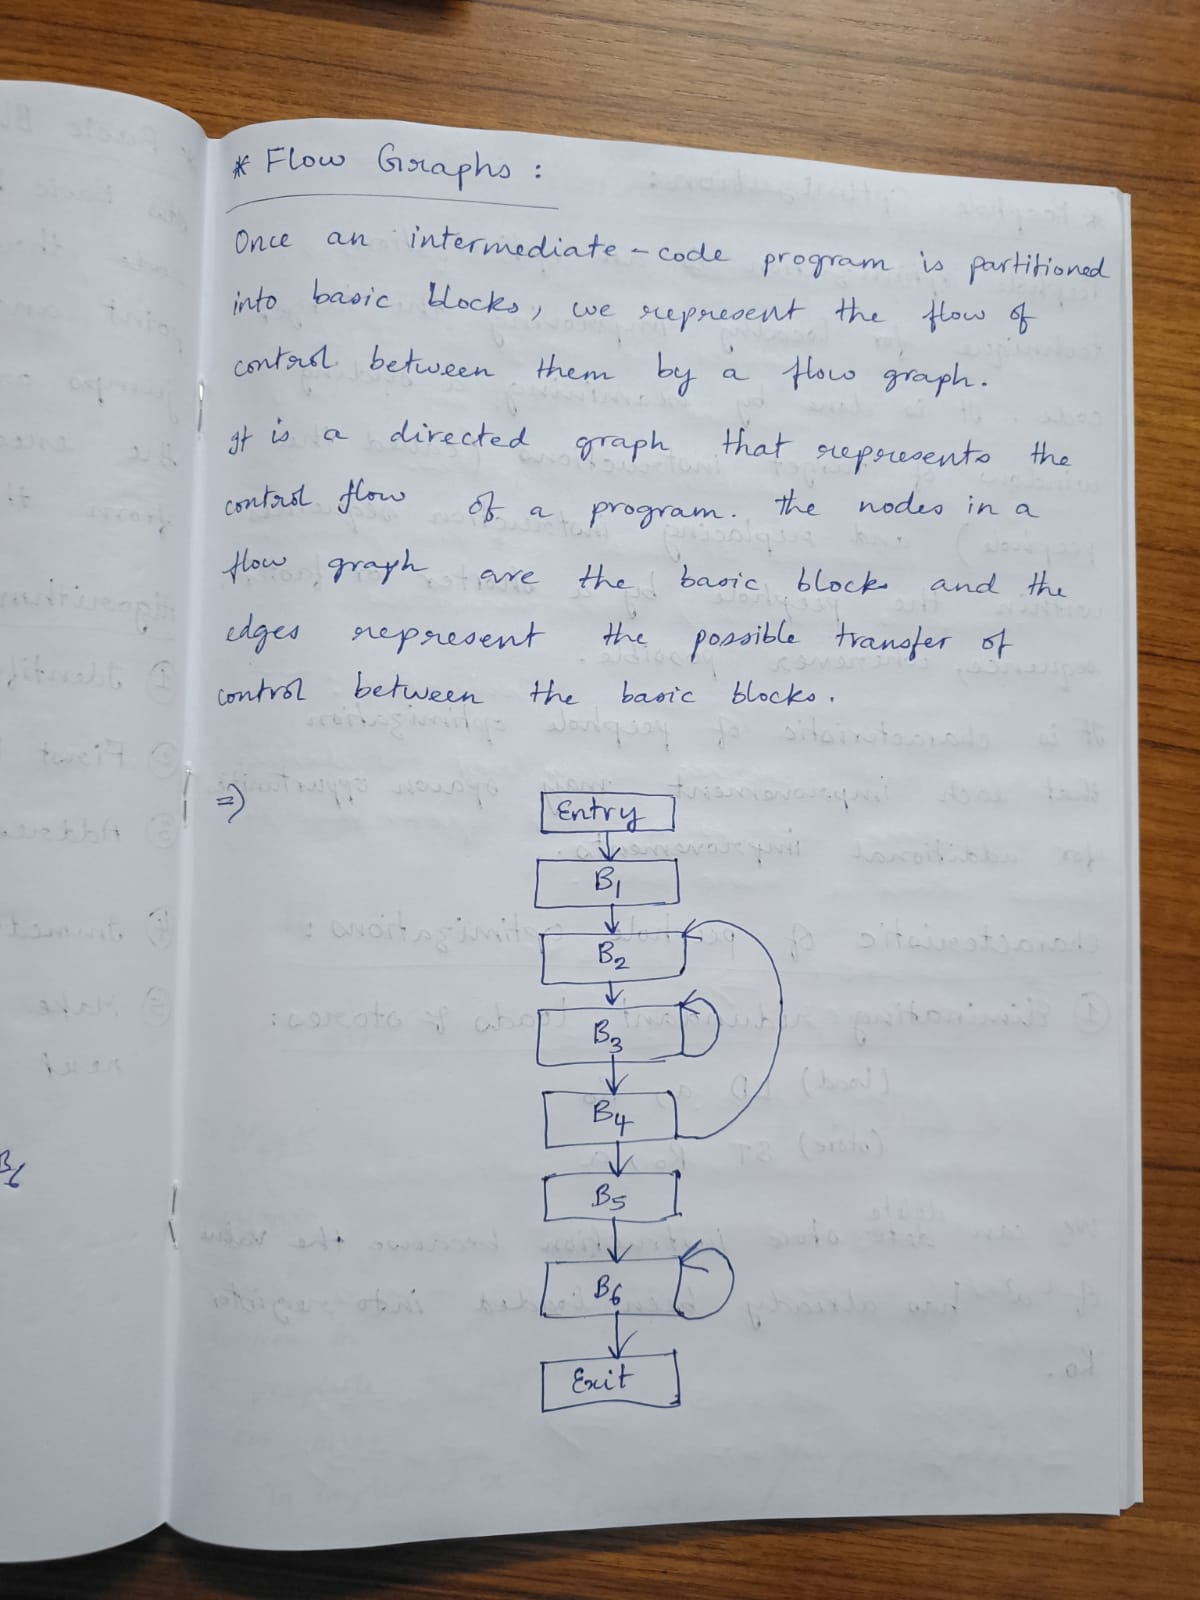 * Flow Graphs :
Once an intermediate-code program is partitioned
into basic blocks, we represent the flow of
control between them by a flow graph.
It is a directed graph that represents the
control flow of a program. The nodes in a
flow graph are the basic blocks and the
edges represent the possible transfer of
control between the basic blocks.
=>
Entry
B1
B2
B3
B4
B5
B6
Exit